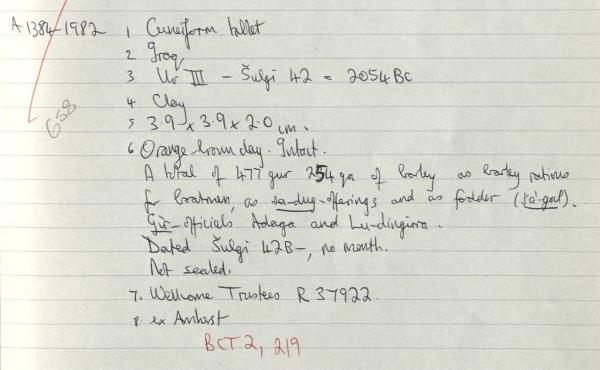 A 1384-1982 1 Cuneiform tablet
2 Iraq
3 Ur III - Šulgi 42 = 2054 BC
4 Clay
658
5 3.9 x 3.9 x 2.0 cm.
6 Orange brown clay. Intact.
A total of 477 gur 254 qa of barley as barley rations
for boatmen, as sa-dug-offerings and as fodder (šà-gal).
Gìr-officials Adaga and Lu-dingirra.
Dated Šulgi 42B-, no month.
Not sealed.
7. Wellcome Trustees R 37922.
8. ex Amherst
BCT 2, 219